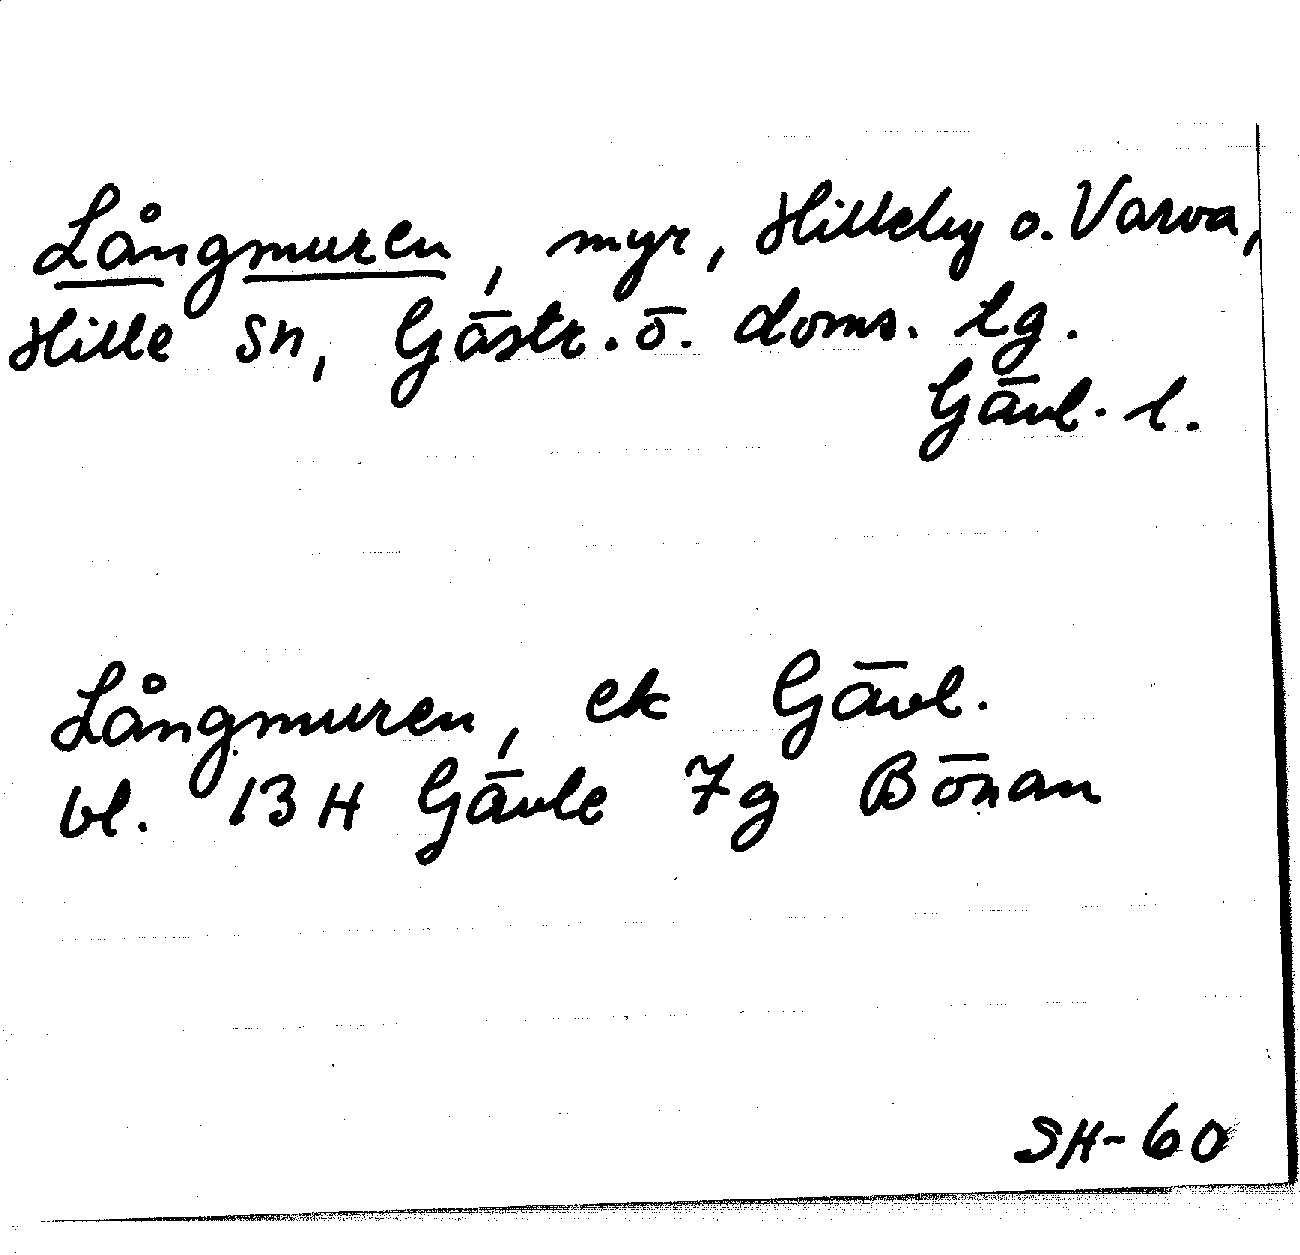 Långmuren, myr, Hilleby o. Varva,
Hille sn, Gästr. ö. doms. tg.
Gävl. l.
Långmuren, ek Gävl.
bl. 13H Gävle 7g Bönan
SH-60